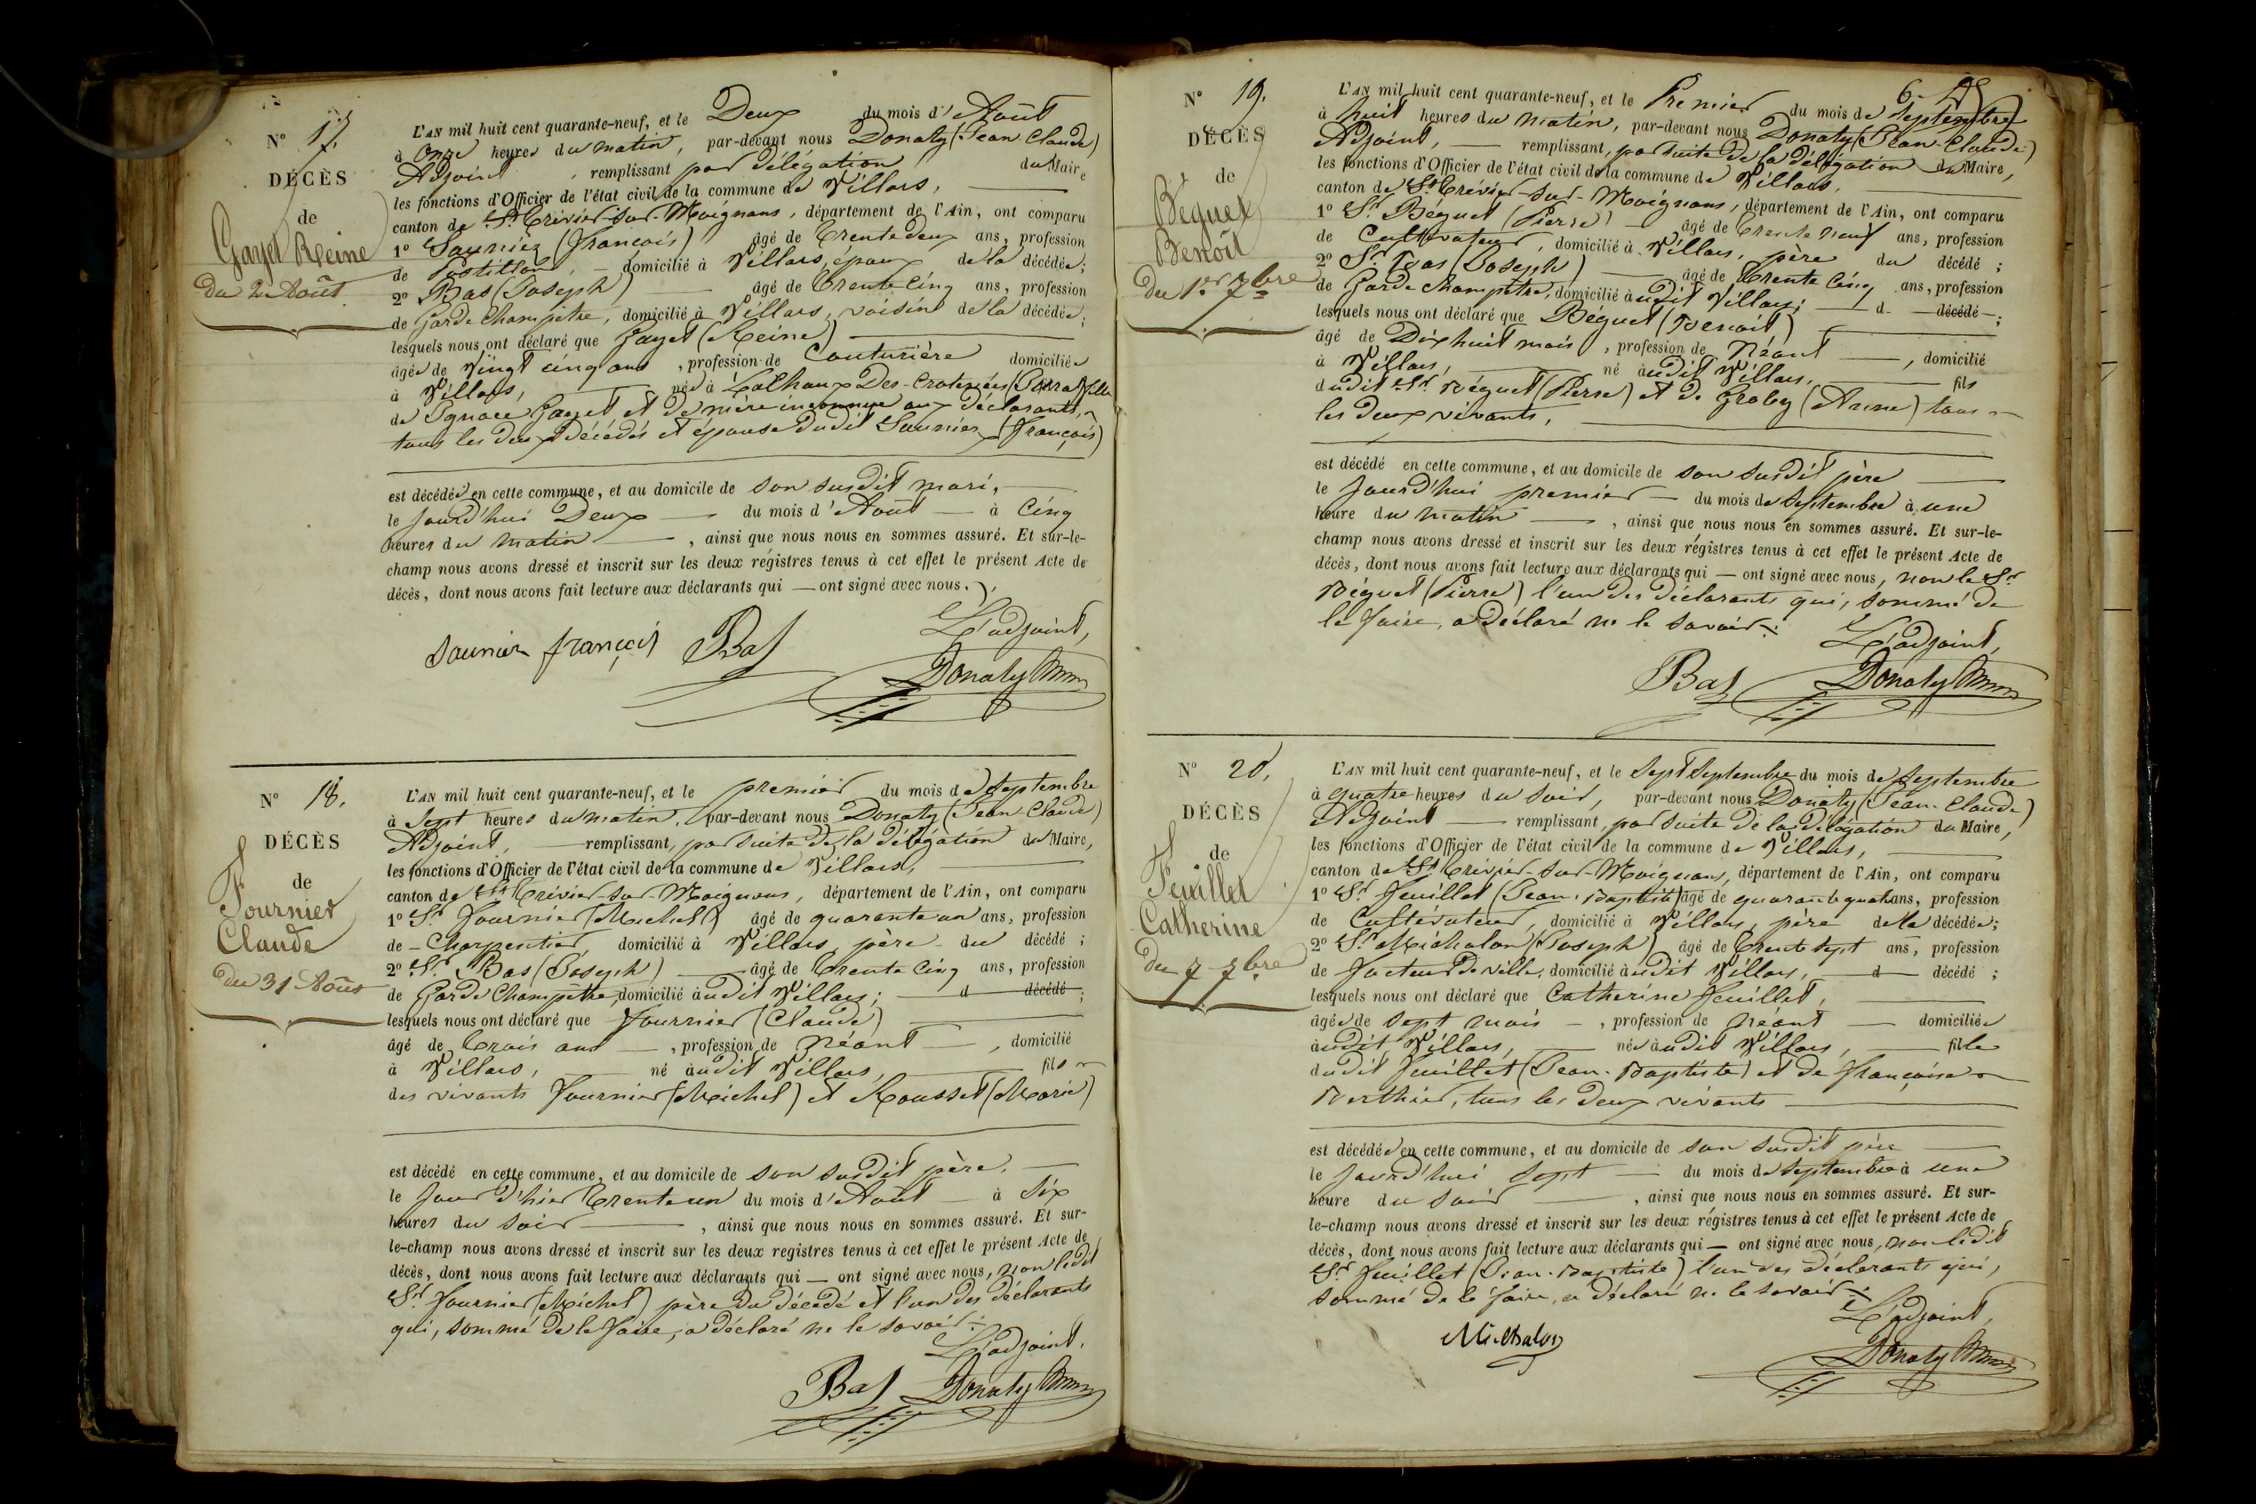 N° 17.
DÉCÈS
de
Gayet Reine
du 2 Août.
L'AN mil huit cent quarante-neuf, et le Deux du mois d'Août
à Onze heures du matin, par-devant nous Donaty (Jean Claude)
Adjoint, remplissant par délégation du Maire
les fonctions d'Officier de l'état civil de la commune de Villars,
canton de St Trivier-sur-Moignans, département de l'Ain, ont comparu
1° Saunier (François) âgé de trente deux ans, profession
de Postillon, domicilié à Villars, époux de la décédée;
2° Bas (Joseph) âgé de trente cinq ans, profession
de Garde Champêtre, domicilié à Villars, voisin de la décédée;
lesquels nous ont déclaré que Gayet (Reine)
âgée de vingt cinq ans, profession de Couturière domiciliée
à Villars, née à fille
de Ignace Gayet et de mère inconnue aux déclarants,
tous les deux décédés et épouse dudit Saunier (François)
est décédée en cette commune, et au domicile de son susdit mari,
le jourd'hui Deux du mois d'Août à cinq
heures du matin, ainsi que nous nous en sommes assuré. Et sur-le-
champ nous avons dressé et inscrit sur les deux régistres tenus à cet effet le présent Acte de
décès, dont nous avons fait lecture aux déclarants qui — ont signé avec nous.
L'adjoint,
Saunier françois Bas Donaty
N° 18.
DÉCÈS
de
Fournier
Claude
du 31 Août
L'AN mil huit cent quarante-neuf, et le premier du mois de Septembre
à Sept heures du matin, par-devant nous Donaty (Jean Claude)
Adjoint, remplissant, par suite de la délégation du Maire,
les fonctions d'Officier de l'état civil de la commune de Villars,
canton de St Trivier-sur-Moignans, département de l'Ain, ont comparu
1° Sr Fournier (Michel) âgé de quarante un ans, profession
de Charpentier, domicilié à Villars, père du décédé;
2° Sr Bas (Joseph) âgé de trente cinq ans, profession
de Garde Champêtre, domicilié àudit Villars; d décédé;
lesquels nous ont déclaré que Fournier (Claude)
âgé de trois ans, profession de Néant, domicilié
à Villars, né àudit Villars, fils
des vivants Fournier (Michel) et Rousset (Marie)
est décédé en cette commune, et au domicile de son susdit père,
le jour d'hier trente un du mois d'Août à six
heures du soir, ainsi que nous nous en sommes assuré. Et sur-
le-champ nous avons dressé et inscrit sur les deux registres tenus à cet effet le présent Acte de
décès, dont nous avons fait lecture aux déclarants qui — ont signé avec nous, non ledit
Sr Fournier (Michel) père du décédé et l'un des déclarants
qui, sommé de le faire, a déclaré ne le savoir.
L'adjoint,
Bas Donaty
N° 19.
DÉCÈS
de
Béguet
Benoît
du 1er 7bre
L'AN mil huit cent quarante-neuf, et le Premier du mois de Septembre
à huit heures du matin, par-devant nous Donaty (Jean-Claude)
Adjoint, remplissant, par suite de la délégation du Maire,
les fonctions d'Officier de l'état civil de la commune de Villars,
canton de St Trivier-sur-Moignans, département de l'Ain, ont comparu
1° Sr Béguet (Pierre) âgé de trente neuf ans, profession
de Cultivateur, domicilié à Villars, père du décédé;
2° Sr Bas (Joseph) âgé de trente cinq ans, profession
de Garde champêtre, domicilié àudit Villars; d décédé;
lesquels nous ont déclaré que Béguet (Benoit)
âgé de Dix huit mois, profession de Néant, domicilié
à Villars, né àudit Villars, fils
dudit Sr Béguet (Pierre) et de (Anne) tous
les deux vivants,
est décédé en cette commune, et au domicile de son susdit père
le jourd'hui premier du mois de Septembre à une
heure du matin, ainsi que nous nous en sommes assuré. Et sur-le-
champ nous avons dressé et inscrit sur les deux régistres tenus à cet effet le présent Acte de
décès, dont nous avons fait lecture aux déclarants qui — ont signé avec nous, non le Sr
Béguet (Pierre) l'un des déclarants qui, sommé de
le faire, a déclaré ne le savoir.
L'adjoint,
Bas Donaty
N° 20.
DÉCÈS
de
Feuillet
Catherine
du 7 7bre
L'AN mil huit cent quarante-neuf, et le Sept Septembre du mois de Septembre
à quatre heures du soir, par-devant nous Donaty (Jean-Claude)
Adjoint remplissant, par suite de la délégation du Maire,
les fonctions d'Officier de l'état civil de la commune de Villars,
canton de St Trivier-sur-Moignans, département de l'Ain, ont comparu
1° Sr Feuillet (Jean-Baptiste) âgé de quarante quatre ans, profession
de Cultivateur, domicilié à Villars, père de la décédée;
2° Sr Michalon (Joseph) âgé de trente sept ans, profession
de facteur de ville, domicilié àudit Villars, d décédé;
lesquels nous ont déclaré que Catherine Feuillet,
âgée de sept mois, profession de Néant domiciliée
àudit Villars, née àudit Villars, fille
dudit Feuillet (Jean-Baptiste) et de Françoise
Berthier, tous les deux vivants
est décédée en cette commune, et au domicile de son susdit père
le jourd'hui sept du mois de Septembre à une
heure du soir, ainsi que nous nous en sommes assuré. Et sur-
le-champ nous avons dressé et inscrit sur les deux régistres tenus à cet effet le présent Acte de
décès, dont nous avons fait lecture aux déclarants qui — ont signé avec nous, non ledit
Sr Feuillet (Jean-Baptiste) l'un des déclarants qui,
sommé de le faire, a déclaré ne le savoir.
L'adjoint,
Michalon Donaty